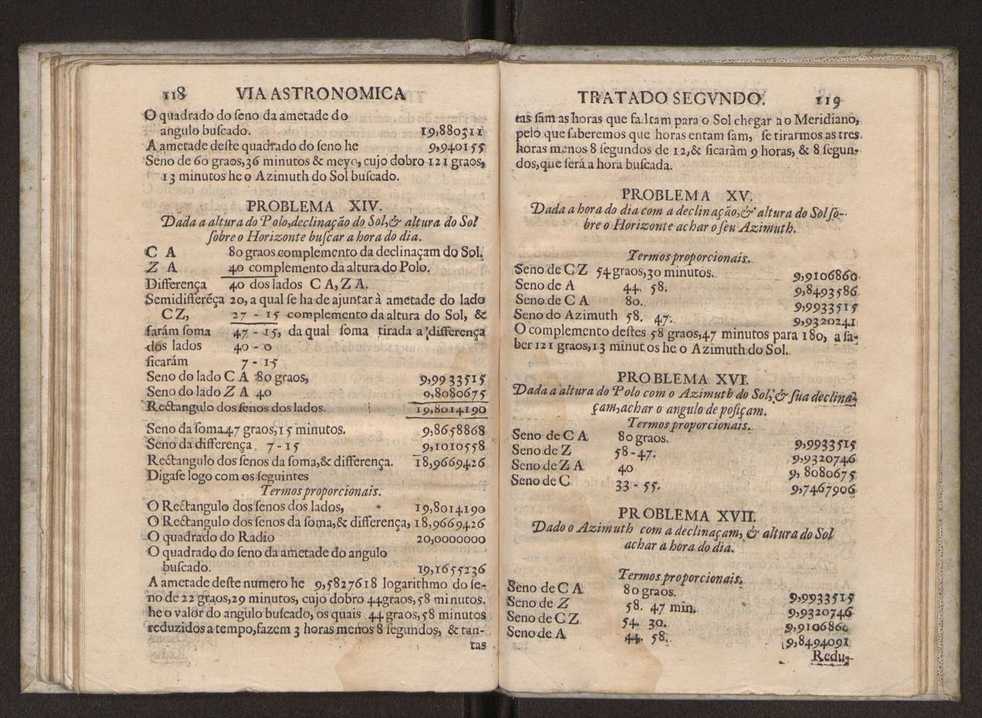 118 VIA ASTRONOMICA
O quadrado do ſeno da ametade do
angulo buſcado. 19,880311
A ametade deſte quadrado do ſeno he 9,940155
Seno de 60 graos,36 minutos & meyo, cujo dobro 121 graos,
13 minutos he o Azimuth do Sol buſcado.
PROBLEMA XIV.
Dada a altura do Polo,declinação do Sol,& altura do Sol
ſobre o Horizonte buſcar a hora do dia.
C A 80 graos complemento da declinaçam do Sol.
Z A 40 complemento da altura do Polo.
Differença 40 dos lados C A, Z A.
Semidifferẽça 20, a qual ſe ha de ajuntár à ametade do lado
CZ, 27 - 15 complemento da altura do Sol, &
farám ſoma 47 - 15, da qual ſoma tirada a differença
dos lados 40 - 0
ficarám 7 - 15
Seno do lado C A 80 graos, 9,9933515
Seno do lado Z A 40 9,8080675
Rectangulo dos ſenos dos lados. 19,8014190
Seno da ſoma 47 graos,15 minutos. 9,8658868
Seno da differença 7 - 15 9,1010558
Rectangulo dos ſenos da ſoma,& differença. 18,9669426
Digaſe logo com os ſeguintes
Termos proporcionais.
O Rectangulo dos ſenos dos lados, 19,8014190
O Rectangulo dos ſenos da ſoma,& differença, 18,9669426
O quadrado do Radio 20,0000000
O quadrado do ſeno da ametade do angulo
buſcado. 19,1655236
A ametade deſte numero he 9,5827618 logarithmo do ſe-
no de 22 graos,29 minutos, cujo dobro 44graos,58 minutos.
he o valor do angulo buſcado, os quais 44 graos,58 minutos
reduzidos a tempo,fazem 3 horas menos 8 ſegundos, & tan-
tas
TRATADO SEGVNDO. 119
tas ſam as horas que faltam para o Sol chegar ao Meridiano,
pelo que ſaberemos que horas entam ſam, ſe tirarmos as tres
horas menos 8 ſegundos de 12,& ficarám 9 horas, & 8 ſegun-
dos,que ſerá a hora buſcada.
PROBLEMA XV.
Dada a hora do dia com a declinação,& altura do Sol ſo-
bre o Horizonte achar o ſeu Azimuth.
Termos proporcionais.
Seno de C Z 54 graos,30 minutos. 9,9106860
Seno de A 44. 58. 9,8493586
Seno de C A 80. 9,9933515
Seno do Azimuth 58. 47. 9,9320241
O complemento deſtes 58 graos,47 minutos para 180, a ſa-
ber 121 graos,13 minutos he o Azimuth do Sol.
PROBLEMA XVI.
Dada a altura do Polo com o Azimuth do Sol,& ſua declina-
çam,achar o angulo de poſiçam.
Termos proporcionais.
Seno de C A 80 graos. 9,9933515
Seno de Z 58-47. 9,9320746
Seno de Z A 40 9,8080675
Seno de C 33 - 55. 9,7467906
PROBLEMA XVII.
Dado o Azimuth com a declinaçam, & altura do Sol
achar a hora do dia.
Termos proporcionais.
Seno de C A 80 graos. 9,9933515
Seno de Z 58. 47 min. 9,9320746
Seno de C Z 54. 30. 9,9106860
Seno de A 44. 58. 9,8494091
Redu-